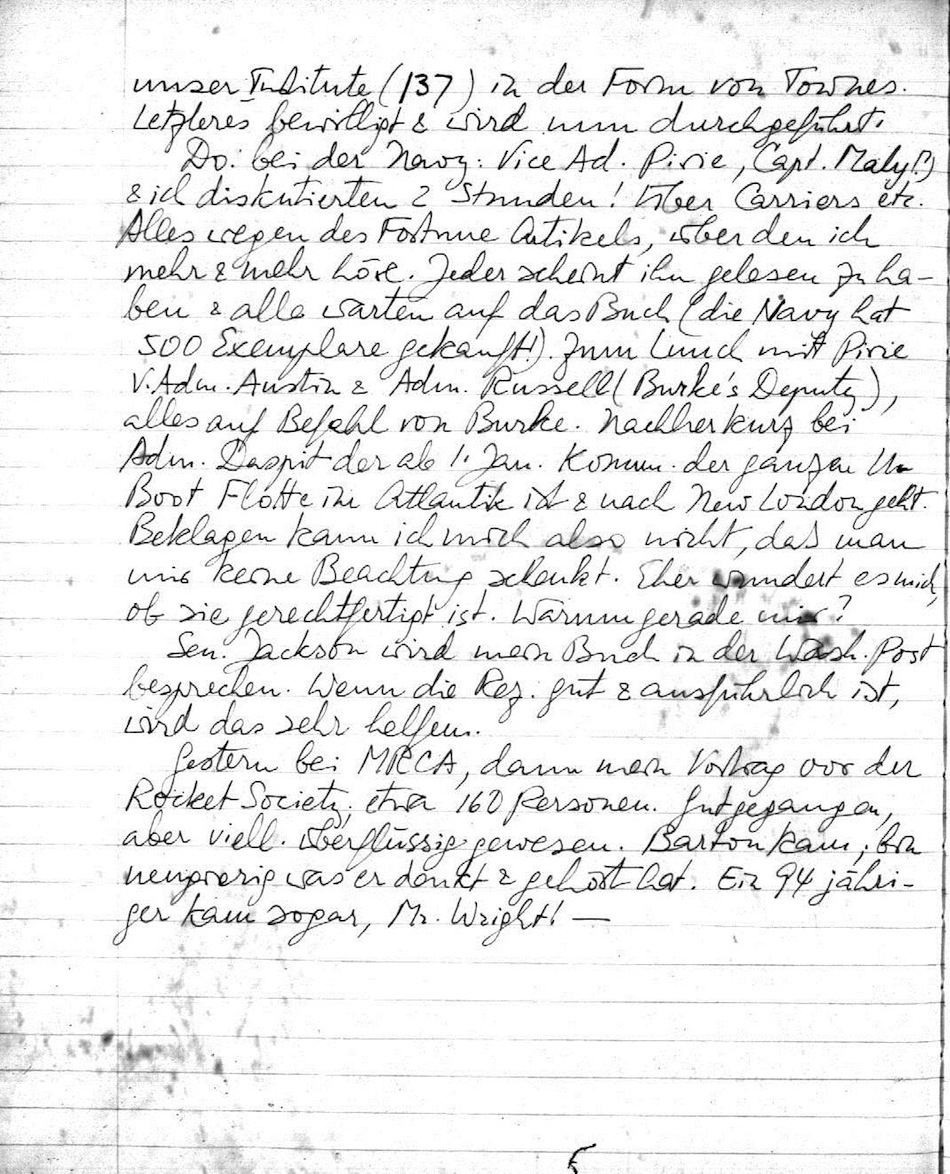 unser Institute (137) in der Form von Townes.
Letzleres bewilligt & wird nun durchgeführt.
Do. bei der Navy: Vice Ad. Pirie, Capt. Maly(?)
& ich diskutierten 2 Stunden! Über Carriers etc.
Alles wegen des Fortune Artikels, über den ich
mehr & mehr höre. Jeder scheint ihn gelesen zu ha-
ben & alle warten auf das Buch (die Navy hat
500 Exemplare gekauft!). Zum Lunch mit Pirie
V. Adm. Austin & Adm. Russell (Burke's Deputy),
alles auf Befehl von Burke. Nachher kurz bei
Adm. Daspit der ab 1. Jan. Komm. der ganzen U-
Boot Flotte im Atlantik ist & nach New London geht.
Beklagen kann ich mich also nicht, daß man
mir keine Beachtung schenkt. Eher wundert es mich,
ob sie gerechtfertigt ist. Warum gerade mir?
Sen. Jackson wird mein Buch in der Wash. Post
besprechen. Wenn die Rez. gut & ausführlich ist,
wird das sehr helfen.
Gestern bei MRCA, dann mein Vortrag vor der
Rocket Society, etwa 160 Personen. Gutgegangen,
aber viell. überflüssig gewesen. Barton kam, bin
neugierig was er denkt & gehört hat. Ein 94 jähri-
ger kam sogar, Mr. Wright! —